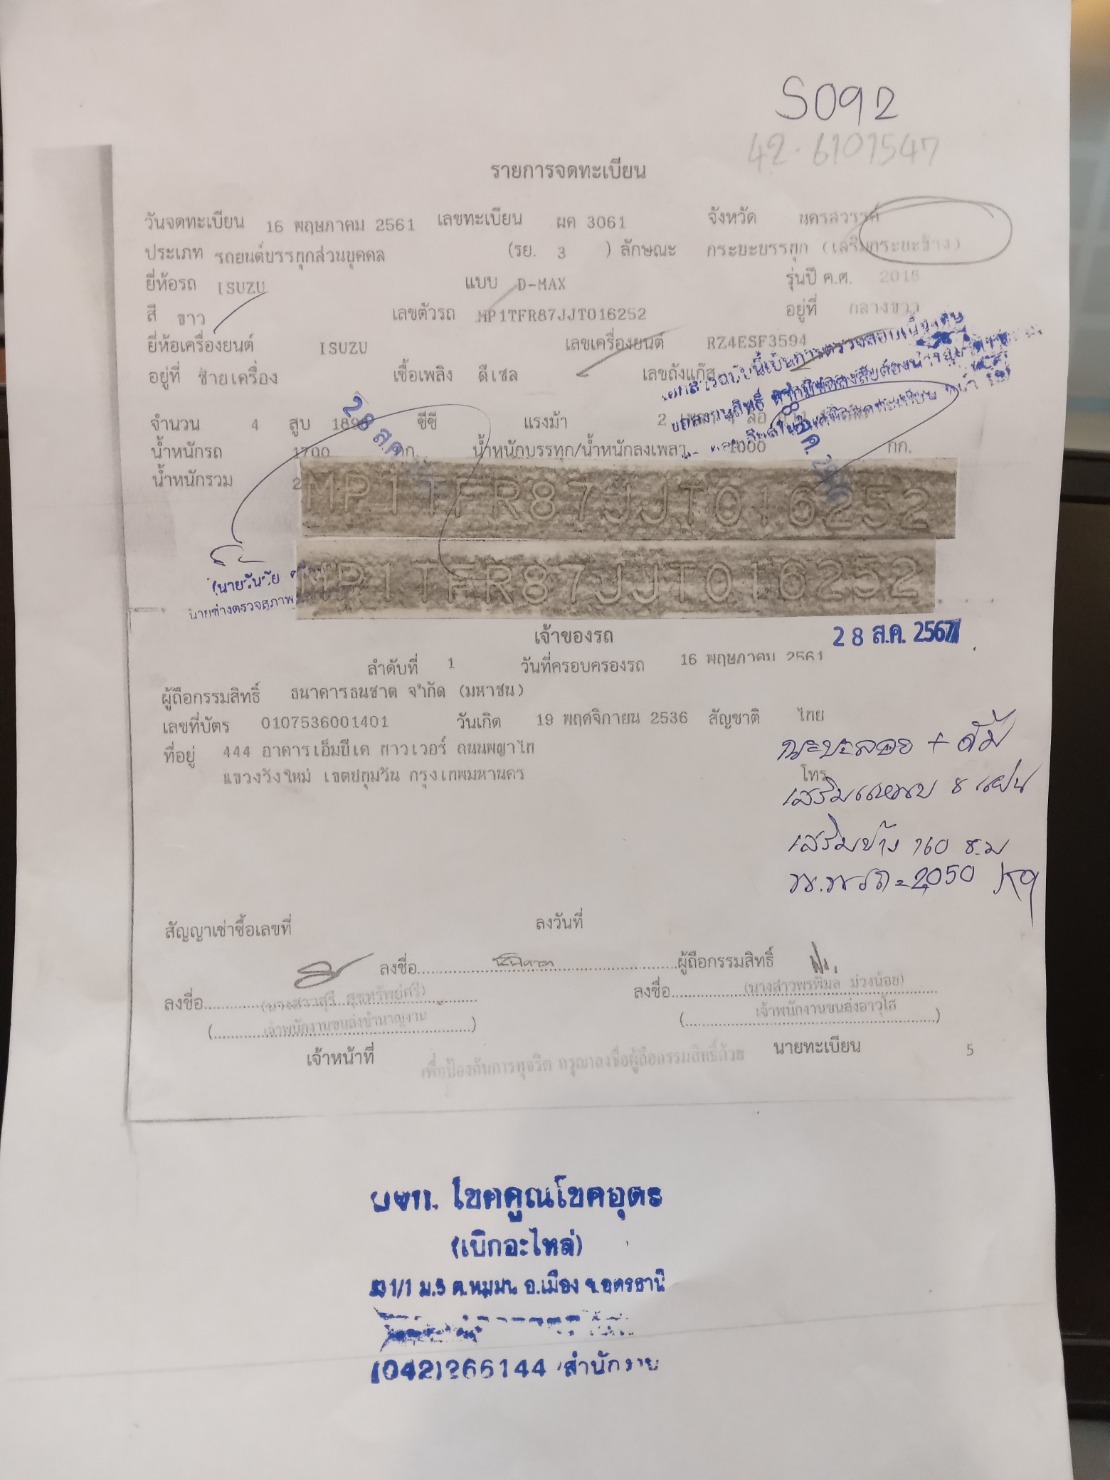 S092
42-6101547
รายการจดทะเบียน
วันจดทะเบียน 16 พฤษภาคม 2561 เลขทะเบียน ผค 3061 จังหวัด นครสวรรค์
ประเภท รถยนต์บรรทุกส่วนบุคคล (รย. 3 ) ลักษณะ กระบะบรรทุก (เสริมกระบะข้าง)
ยี่ห้อรถ ISUZU แบบ D-MAX รุ่นปี ค.ศ. 2018
สี ขาว เลขตัวรถ MP1TFR87JJT016252 อยู่ที่ กลางขวา
ยี่ห้อเครื่องยนต์ ISUZU เลขเครื่องยนต์ RZ4ESF3594
อยู่ที่ ซ้ายเครื่อง เชื้อเพลิง ดีเซล เลขถังแก๊ส
เอกสารฉบับนี้เป็นการตรวจสอบเบื้องต้น
จำนวน 4 สูบ 1898 ซีซี แรงม้า 2
น้ำหนักรถ 1700 กก. น้ำหนักบรรทุก/น้ำหนักลงเพลา 1000 กก.
น้ำหนักรวม 2
28 ส.ค.
MP1TFR87JJT016252
MP1TFR87JJT016252
(นายวันชัย
นายช่างตรวจสภาพ
เจ้าของรถ 28 ส.ค. 2567
ลำดับที่ 1 วันที่ครอบครองรถ 16 พฤษภาคม 2561
ผู้ถือกรรมสิทธิ์ ธนาคารธนชาต จำกัด (มหาชน)
เลขที่บัตร 0107536001401 วันเกิด 19 พฤศจิกายน 2536 สัญชาติ ไทย
ที่อยู่ 444 อาคารเอ็มบีเค ทาวเวอร์ ถนนพญาไท
แขวงวังใหม่ เขตปทุมวัน กรุงเทพมหานคร โทร
กะบะลอย + ดั้ม
เสริมแหนบ 8 แผ่น
เสริมข้าง 160 ซ.ม
น.น.รถ = 2050 kg
สัญญาเช่าซื้อเลขที่ ลงวันที่
ลงชื่อ ผู้ถือกรรมสิทธิ์
ลงชื่อ ลงชื่อ
(นางสาวพรพิมล ม่วงน้อย)
เจ้าพนักงานขนส่งชำนาญงาน เจ้าพนักงานขนส่งอาวุโส
เจ้าหน้าที่ นายทะเบียน 5
เพื่อป้องกันการทุจริต กรุณาลงชื่อผู้ถือกรรมสิทธิ์ด้วย
บจก. โชคคูณโชคอุดร
(เบิกอะไหล่)
ม.5 ต.หมูม่น อ.เมือง จ.อุดรธานี
(042)266144 สำนักงาน